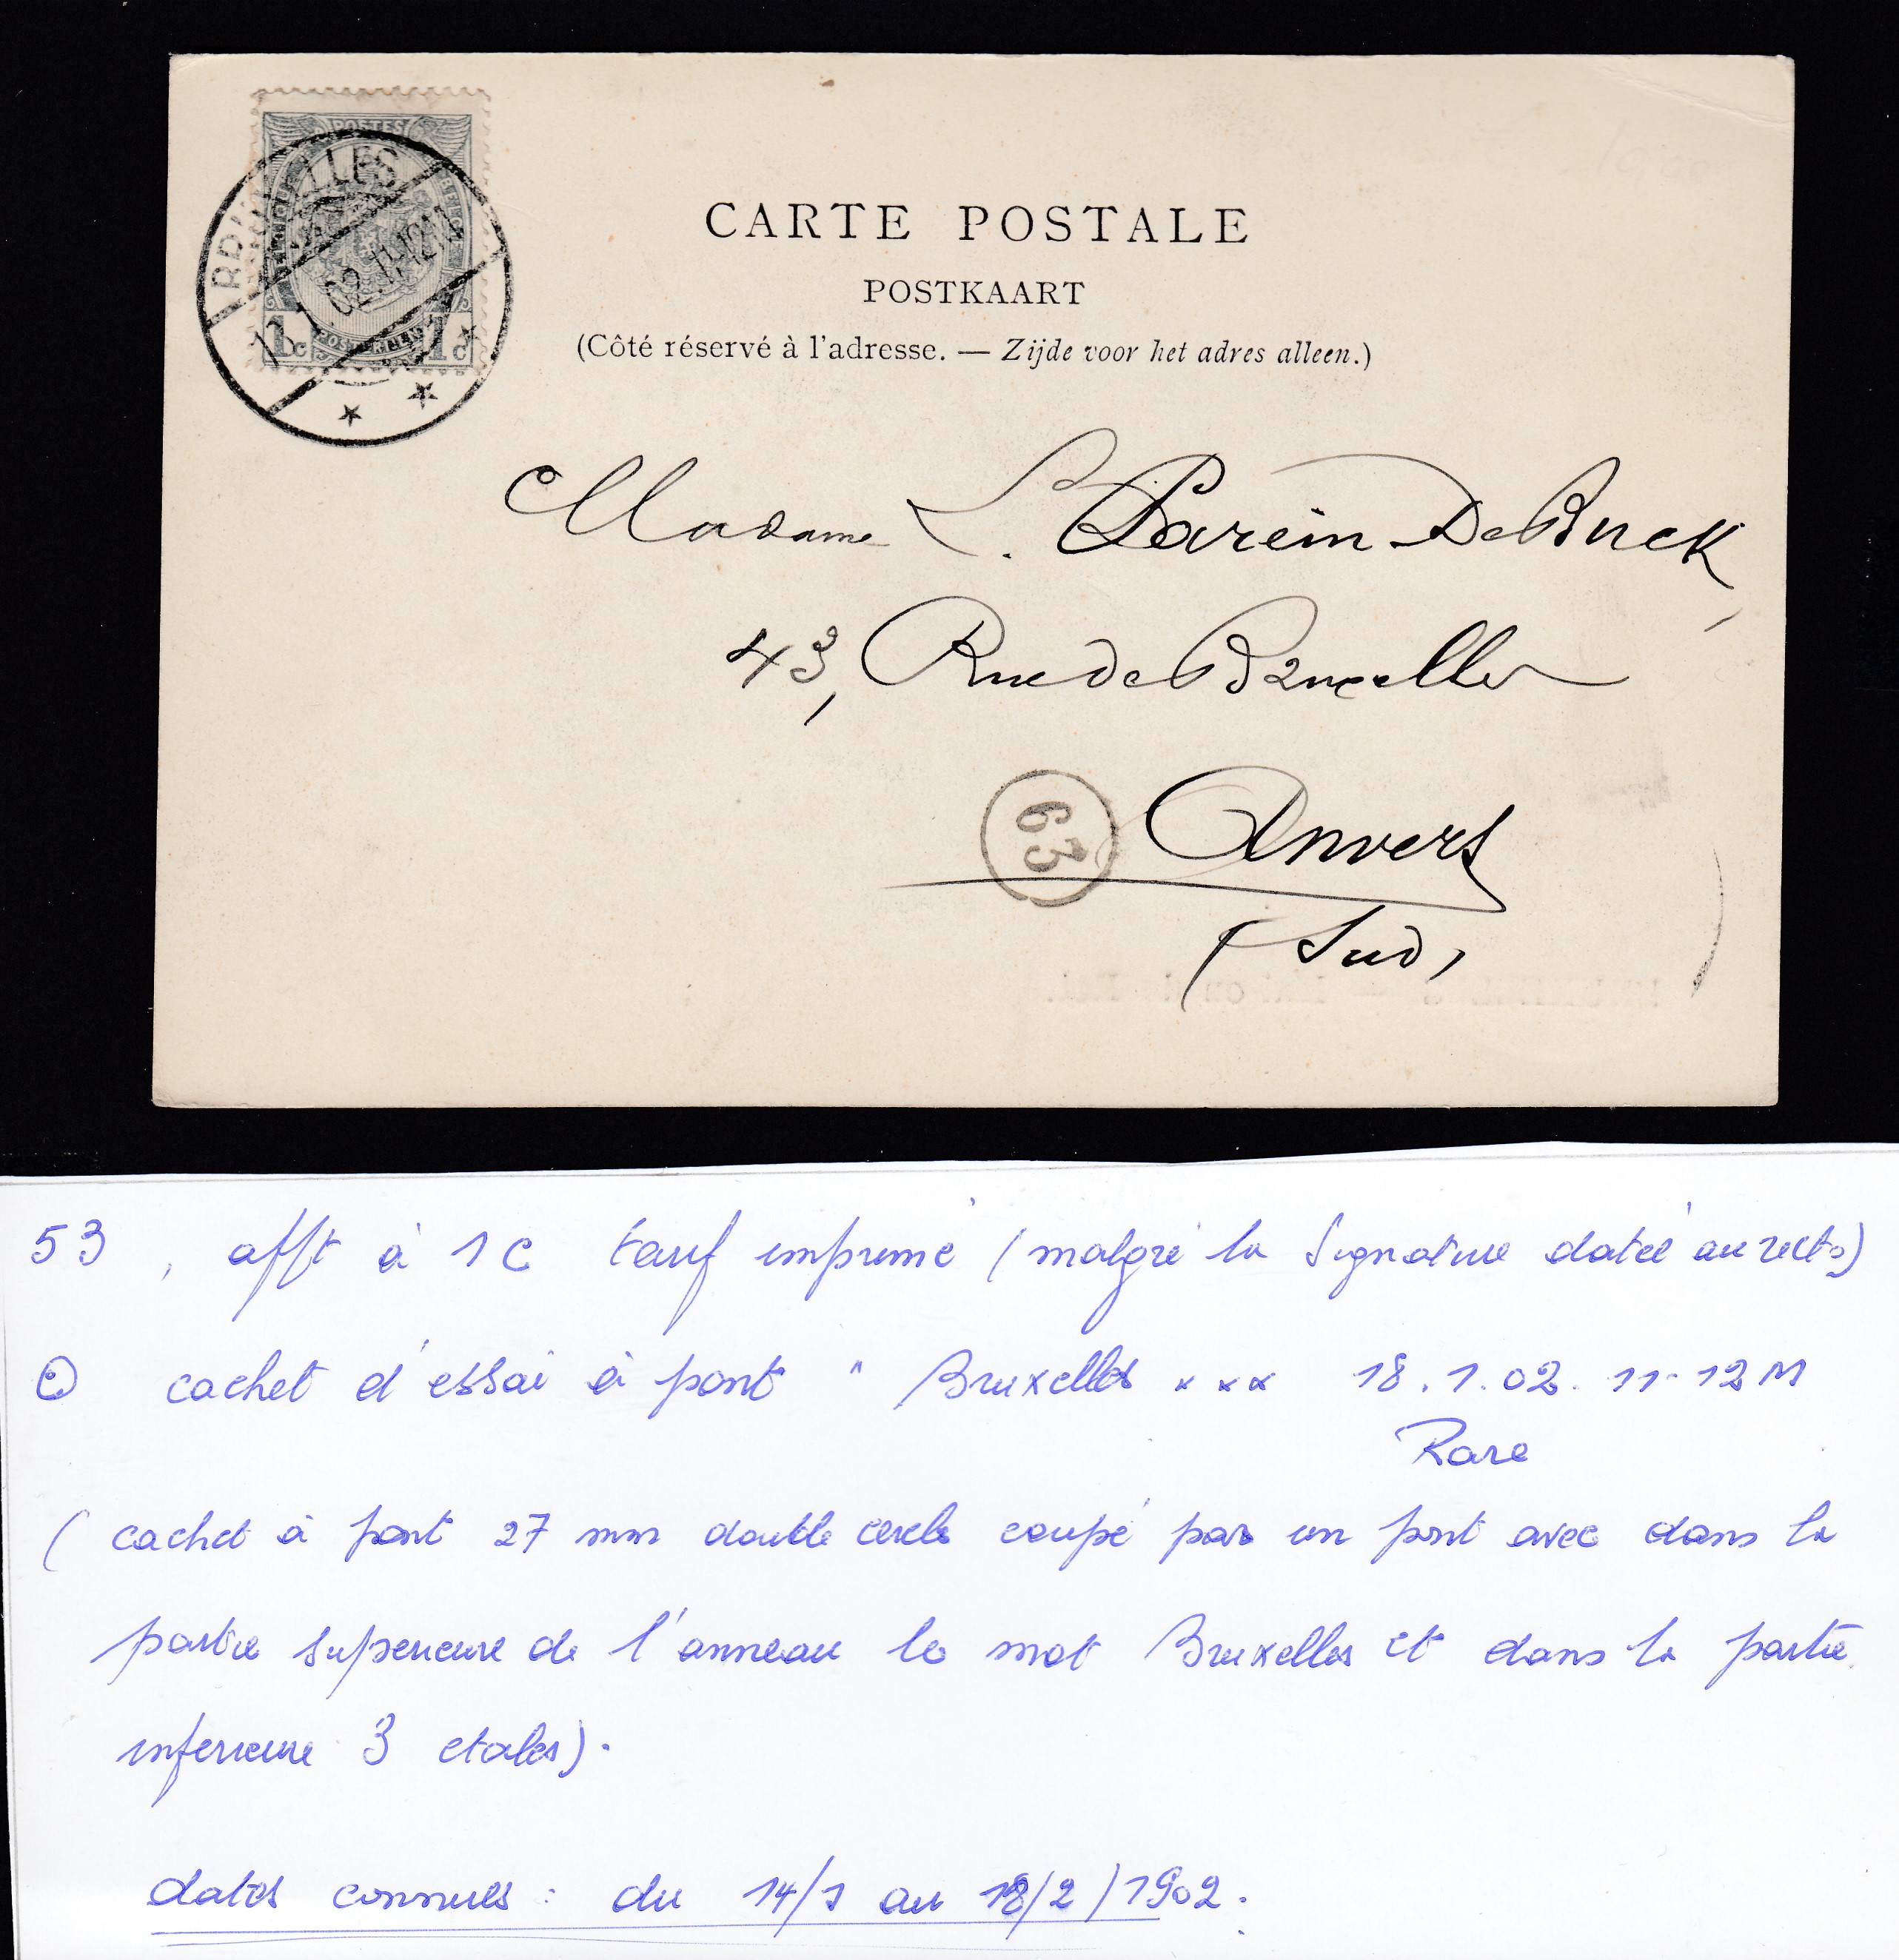 POSTES
BRUXELLES
02.11-12M
1c 1c
CARTE POSTALE
POSTKAART
(Côté réservé à l'adresse. — Zijde voor het adres alleen.)
Madame L. Parein-DeBuck,
43, Rue de Bruxelles
63
Anvers
(Sud)
53, afft à 1 C tarif imprimé (malgré la signature datée au recto)
cachet d'essai à pont " Bruxelles × × × 18.1.02. 11-12 M
Rare
( cachet à pont 27 mm double cercle coupé par un pont avec dans la
partie superieure de l'anneau le mot Bruxelles et dans la partie
inferieure 3 etoiles).
dates connues : du 14/1 au 18/2/1902.